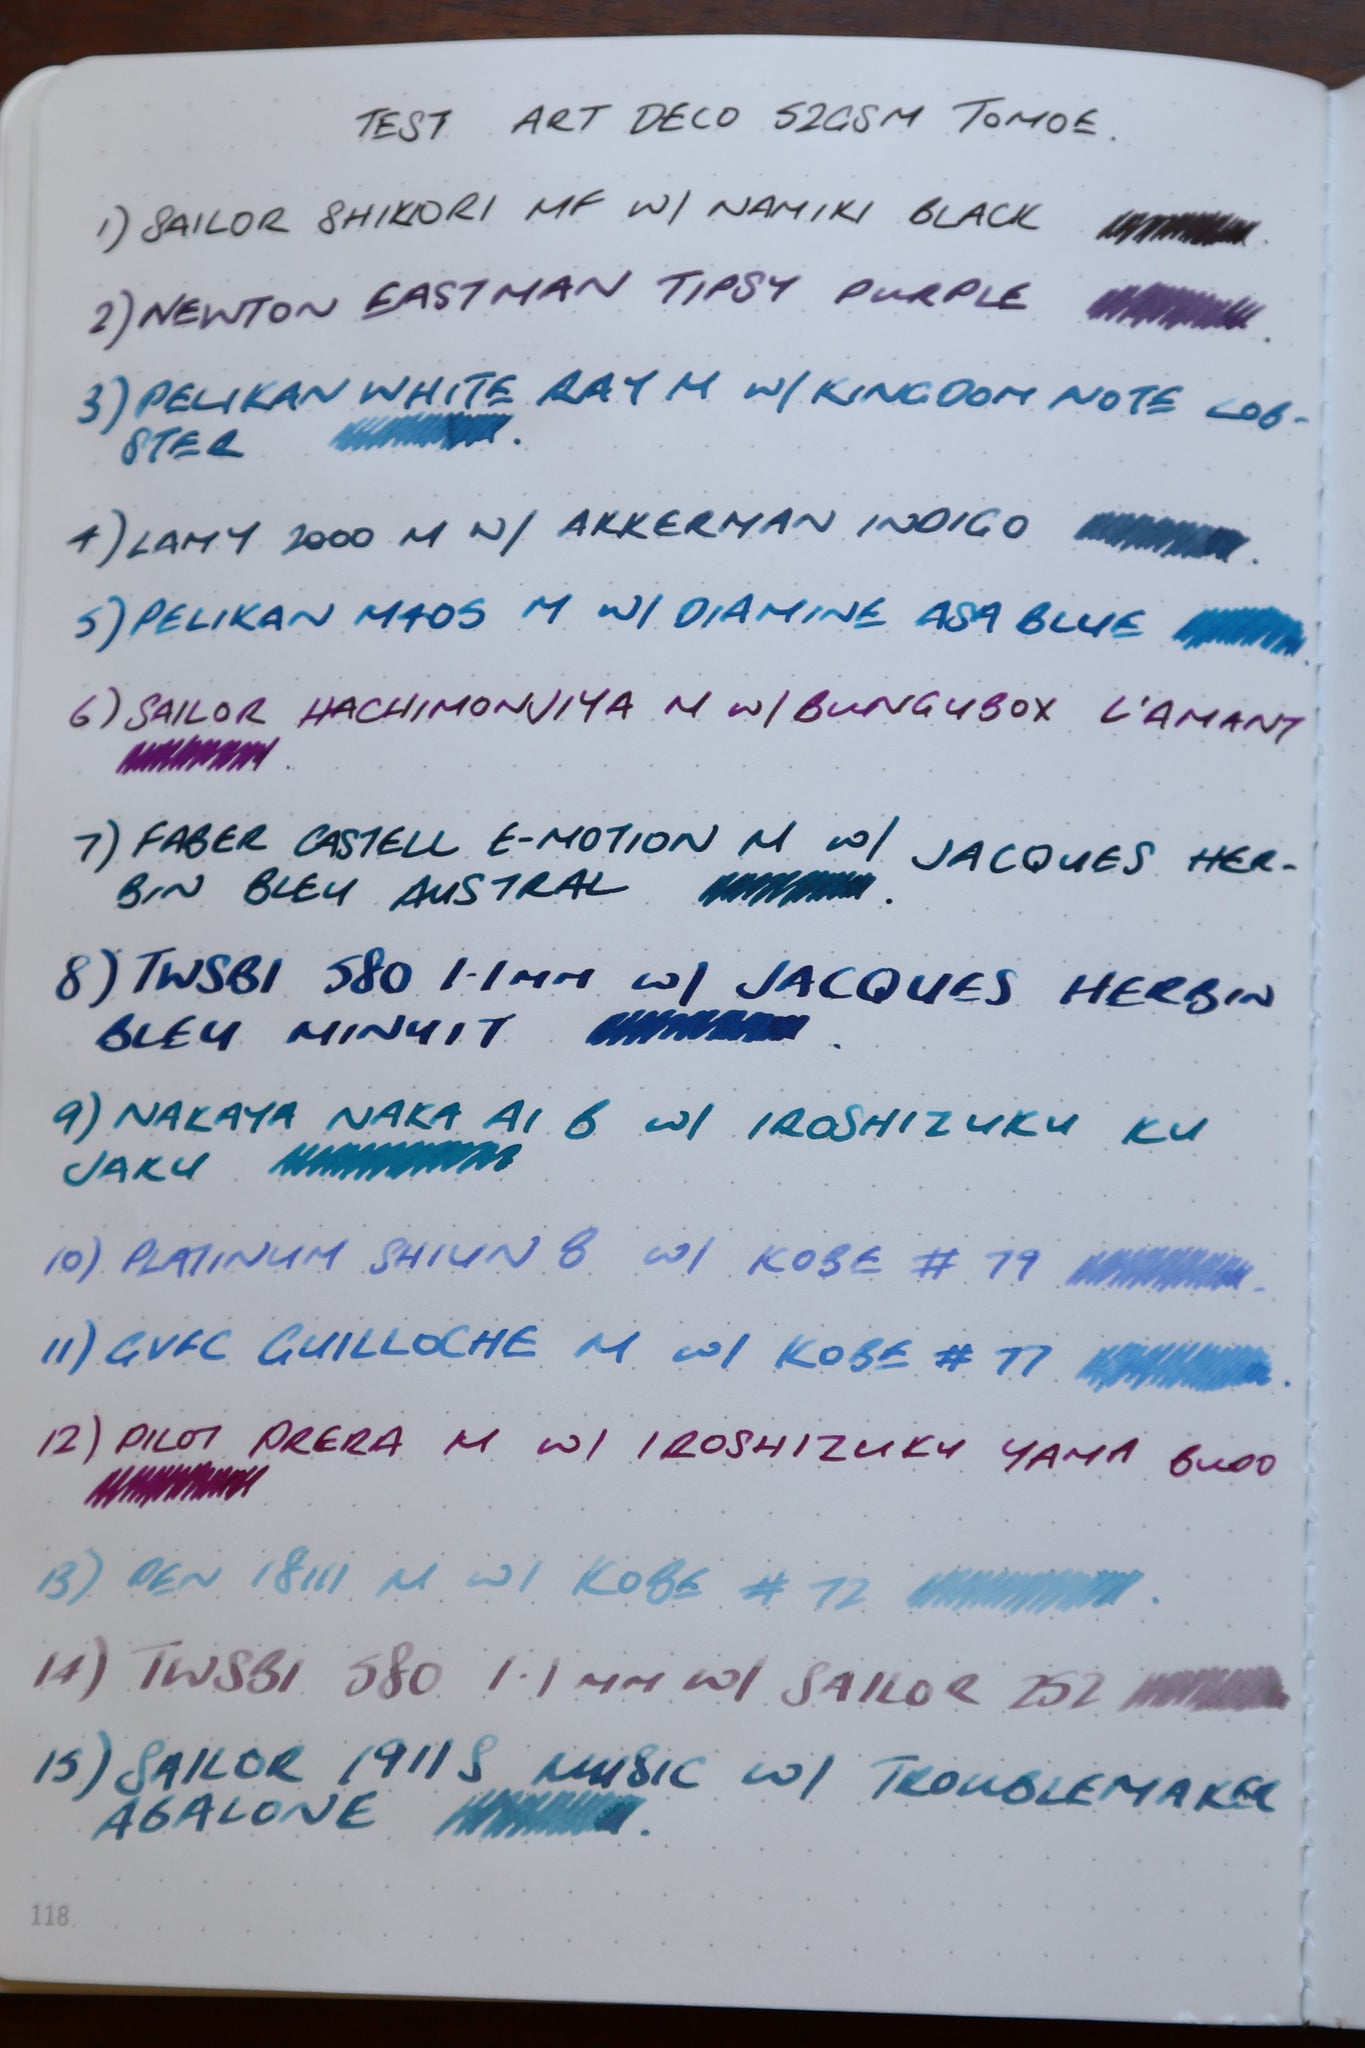 TEST ART DECO 52GSM TOMOE.
1) SAILOR SHIKIORI MF W/ NAMIKI BLACK
2) NEWTON EASTMAN TIPSY PURPLE
3) PELIKAN WHITE RAY M W/ KINGDOM NOTE LOB-
STER
4) LAMY 2000 M W/ AKKERMAN INDIGO
5) PELIKAN M405 M W/ DIAMINE ASA BLUE
6) SAILOR HACHIMONJIYA M W/ BUNGUBOX L'AMANT
7) FABER CASTELL E-MOTION M W/ JACQUES HER-
BIN BLEU AUSTRAL
8) TWSBI 580 1.1MM W/ JACQUES HERBIN
BLEU MINUIT
9) NAKAYA NAKA AI B W/ IROSHIZUKU KU
JAKU
10) PLATINUM SHIUN B W/ KOBE # 79
11) GVFC GUILLOCHE M W/ KOBE # 77
12) PILOT PRERA M W/ IROSHIZUKU YAMA BUDO
13) PEN 18111 M W/ KOBE # 72
14) TWSBI 580 1.1MM W/ SAILOR 252
15) SAILOR 1911S MUSIC W/ TROUBLEMAKER
ABALONE
118